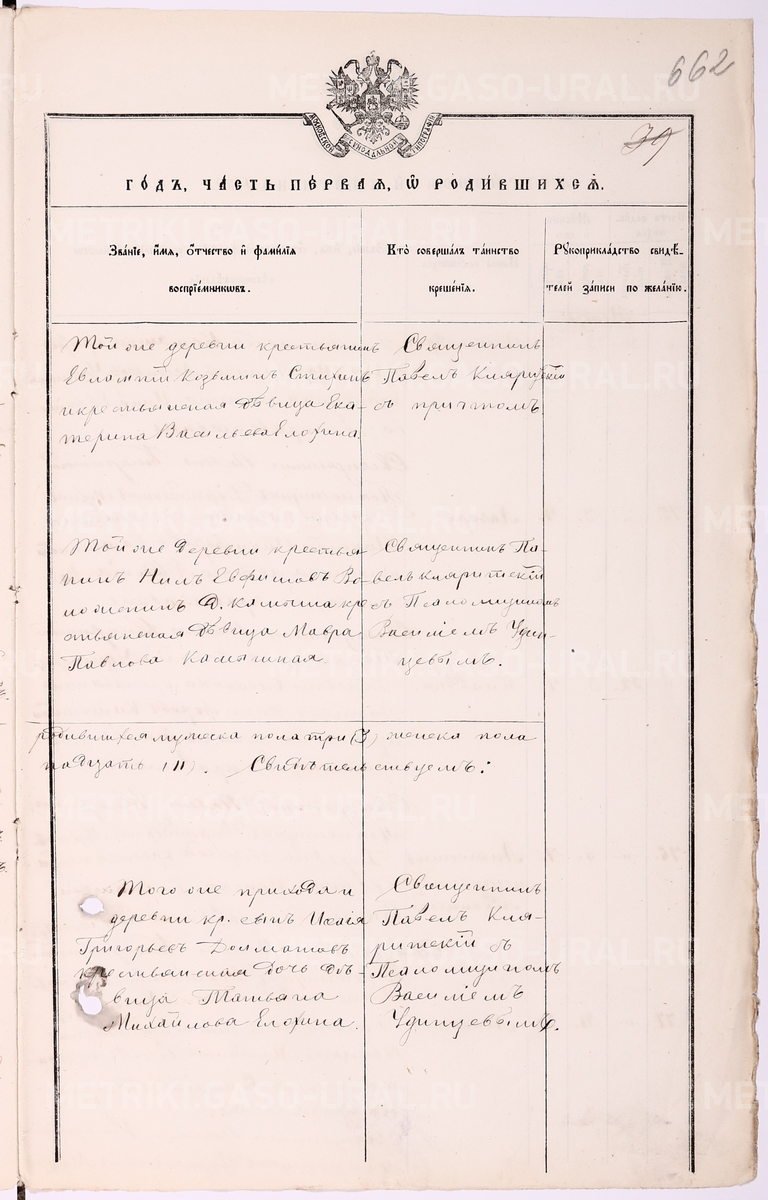 662
39
МОСКОВСКОЙ СѴНОДАЛЬНОЙ ТИПОГРАФІИ
ГО́ДЪ, ЧА́СТЬ ПЕ́РВАѦ, Ѡ҆ РОДИ́ВШИХСѦ.
Зва́нїе, и҆́мѧ, ѻ҆́тчество и҆ фами́лїѧ
воспрїе́мникѡвъ.
Кто̀ соверша́лъ та́инство
креще́нїѧ.
Рꙋкоприкла́дство свидѣ́-
телей за́писи по жела́нїю.
Той же деревни крестьянинъ
Евломпій Козьминъ Стихинъ
и крестьянская дѣвица Ека-
терина Васильева Елохина
Священникъ
Павелъ Кляритскій
съ причтомъ
Той же деревни крестья-
нинъ Нилъ Евфимовъ Во-
ложенинъ Д. Камышка кре-
стьянская дѣвица Мавра
Павлова
Священникъ Па-
велъ Кляритскій
съ Псаломщикомъ
Василіемъ Удин-
цевымъ.
родившихся мужеска пола три (3) женска пола
(11). Свидѣтельствуемъ:
Того же прихода и
деревни кр. сынъ
Григорьевъ Долматовъ
крестьянская дочь дѣ-
вица Татьяна
Михайлова Елохина.
Священникъ
Павелъ Кля-
ритскій съ
Псаломщикомъ
Василіемъ
Удинцевымъ.
METRIKI.GASO-URAL.RU